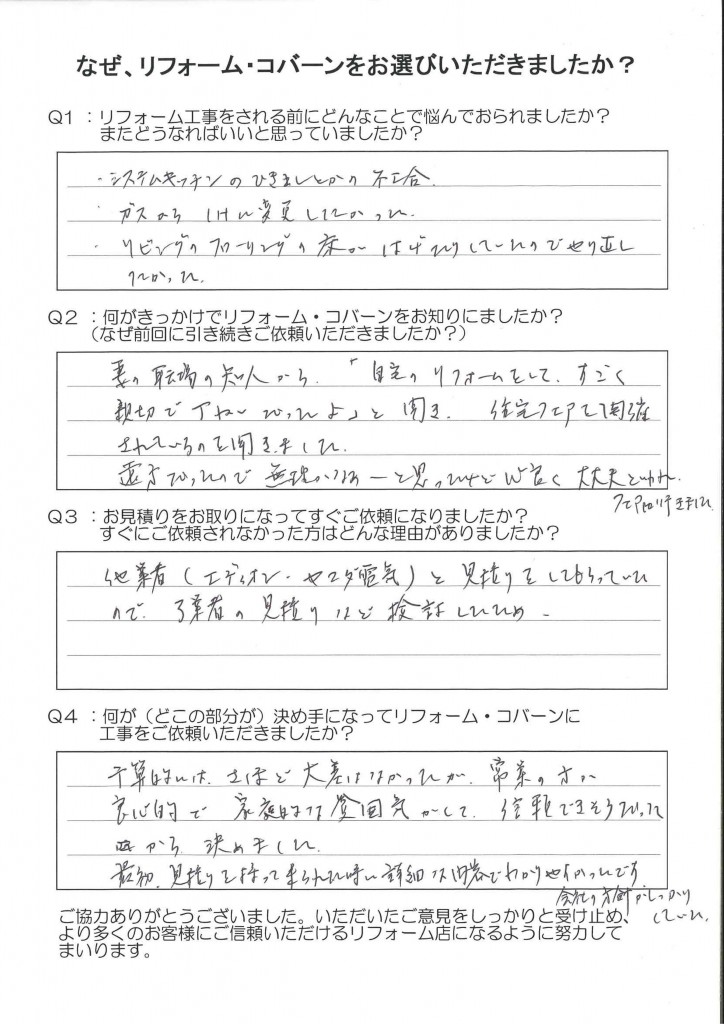 なぜ、リフォーム・コバーンをお選びいただきましたか？
Q1 ：リフォーム工事をされる前にどんなことで悩んでおられましたか？
またどうなればいいと思っていましたか？
・システムキッチンのひきだしとかの不具合。
・ガスから IHに変更したかった。
・リビングのフローリングの床がはげたりしていたのでやり直し
たかった。
Q2 ：何がきっかけでリフォーム・コバーンをお知りにましたか？
（なぜ前回に引き続きご依頼いただきましたか？）
妻の職場の知人から、「自宅のリフォームをして、すごく
親切でていねいだったよ」と聞き、住宅フェアを開催
されているのを聞きました。
遠方だったので無理かなあーと思ったけど 快く大丈夫といわれ、
フェアに行きました。
Q3 ：お見積りをお取りになってすぐご依頼になりましたか？
すぐにご依頼されなかった方はどんな理由がありましたか？
他業者（エディオン・ヤマダ電気）と見積りをしてもらっていた
ので、3業者の見積りなど検討したため。
Q4 ：何が（どこの部分が）決め手になってリフォーム・コバーンに
工事をご依頼いただきましたか？
予算的には、さほど大差はなかったが、営業の方が
良心的で 家庭的な雰囲気がして、信頼できそうだった
から 決めました。
最初、見積りを持って来られた時に詳細な内容でわかりやすかったです。
会社の方針がしっかり
していた。
ご協力ありがとうございました。いただいたご意見をしっかりと受け止め、
より多くのお客様にご信頼いただけるリフォーム店になるように努力して
まいります。